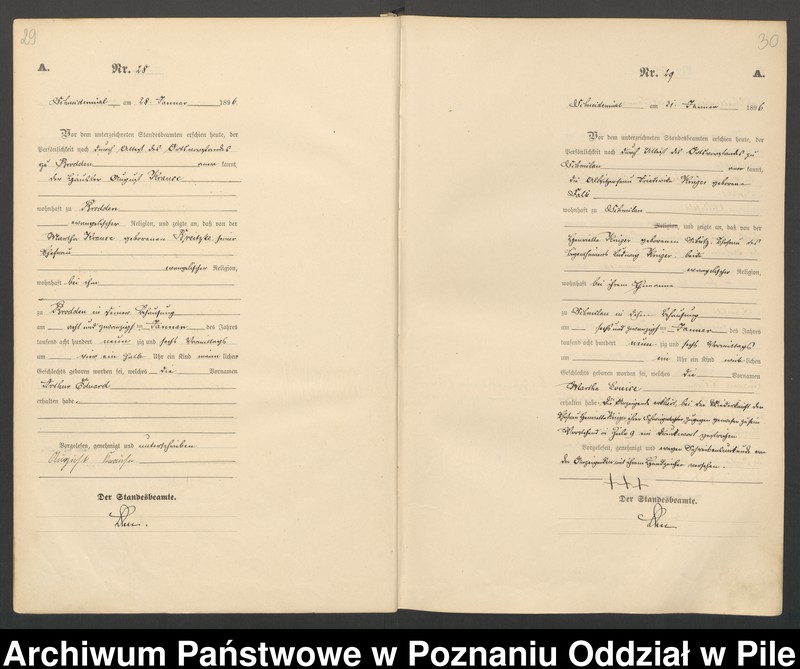 29
A.
Nr. 28
Schneidemühl am 28. Januar 1896
Vor dem unterzeichneten Standesbeamten erschien heute, der
Persönlichkeit nach durch Attest des Ortsvorstandes
zu Brodden anerkannt,
der Häusler August Krause
wohnhaft zu Brodden
evangelischer Religion, und zeigte an, daß von der
Martha Krause geborenen Kreitzke seiner
Ehefrau
evangelischer Religion,
wohnhaft bei ihm
zu Brodden in seiner Behausung
am acht und zwanzigsten Januar des Jahres
tausend acht hundert neunzig und sechs Vormittags
um vier ein halb Uhr ein Kind männlichen
Geschlechts geboren worden sei, welches die Vornamen
Arthur Eduard
erhalten habe.
Vorgelesen, genehmigt und unterschrieben
August Krause
Der Standesbeamte.
30
Nr. 29
A.
Schneidemühl am 31. Januar 1896
Vor dem unterzeichneten Standesbeamten erschien heute, der
Persönlichkeit nach durch Attest des Ortsvorstandes zu
anerkannt,
die geborene
wohnhaft zu
Religion, und zeigte an, daß von der
Henriette geborenen Ehefrau des
Ludwig beide
evangelischer Religion,
wohnhaft bei ihrem Ehemanne
zu in dessen Behausung
am sechs und zwanzigsten Januar des Jahres
tausend acht hundert neunzig und sechs Vormittags
um ein Uhr ein Kind weiblichen
Geschlechts geboren worden sei, welches die Vornamen
Martha Louise
erhalten habe. Die Anzeigende erklärt, bei der Niederkunft der
Ehefrau Henriette zugegen gewesen zu sein
Vorstehend in Zeile 9 ein Druckwort gestrichen
Vorgelesen, genehmigt und wegen Schreibensunkunde von
der Anzeigenden mit ihrem Handzeichen versehen.
+++
Der Standesbeamte.
Archiwum Państwowe w Poznaniu Oddział w Pile